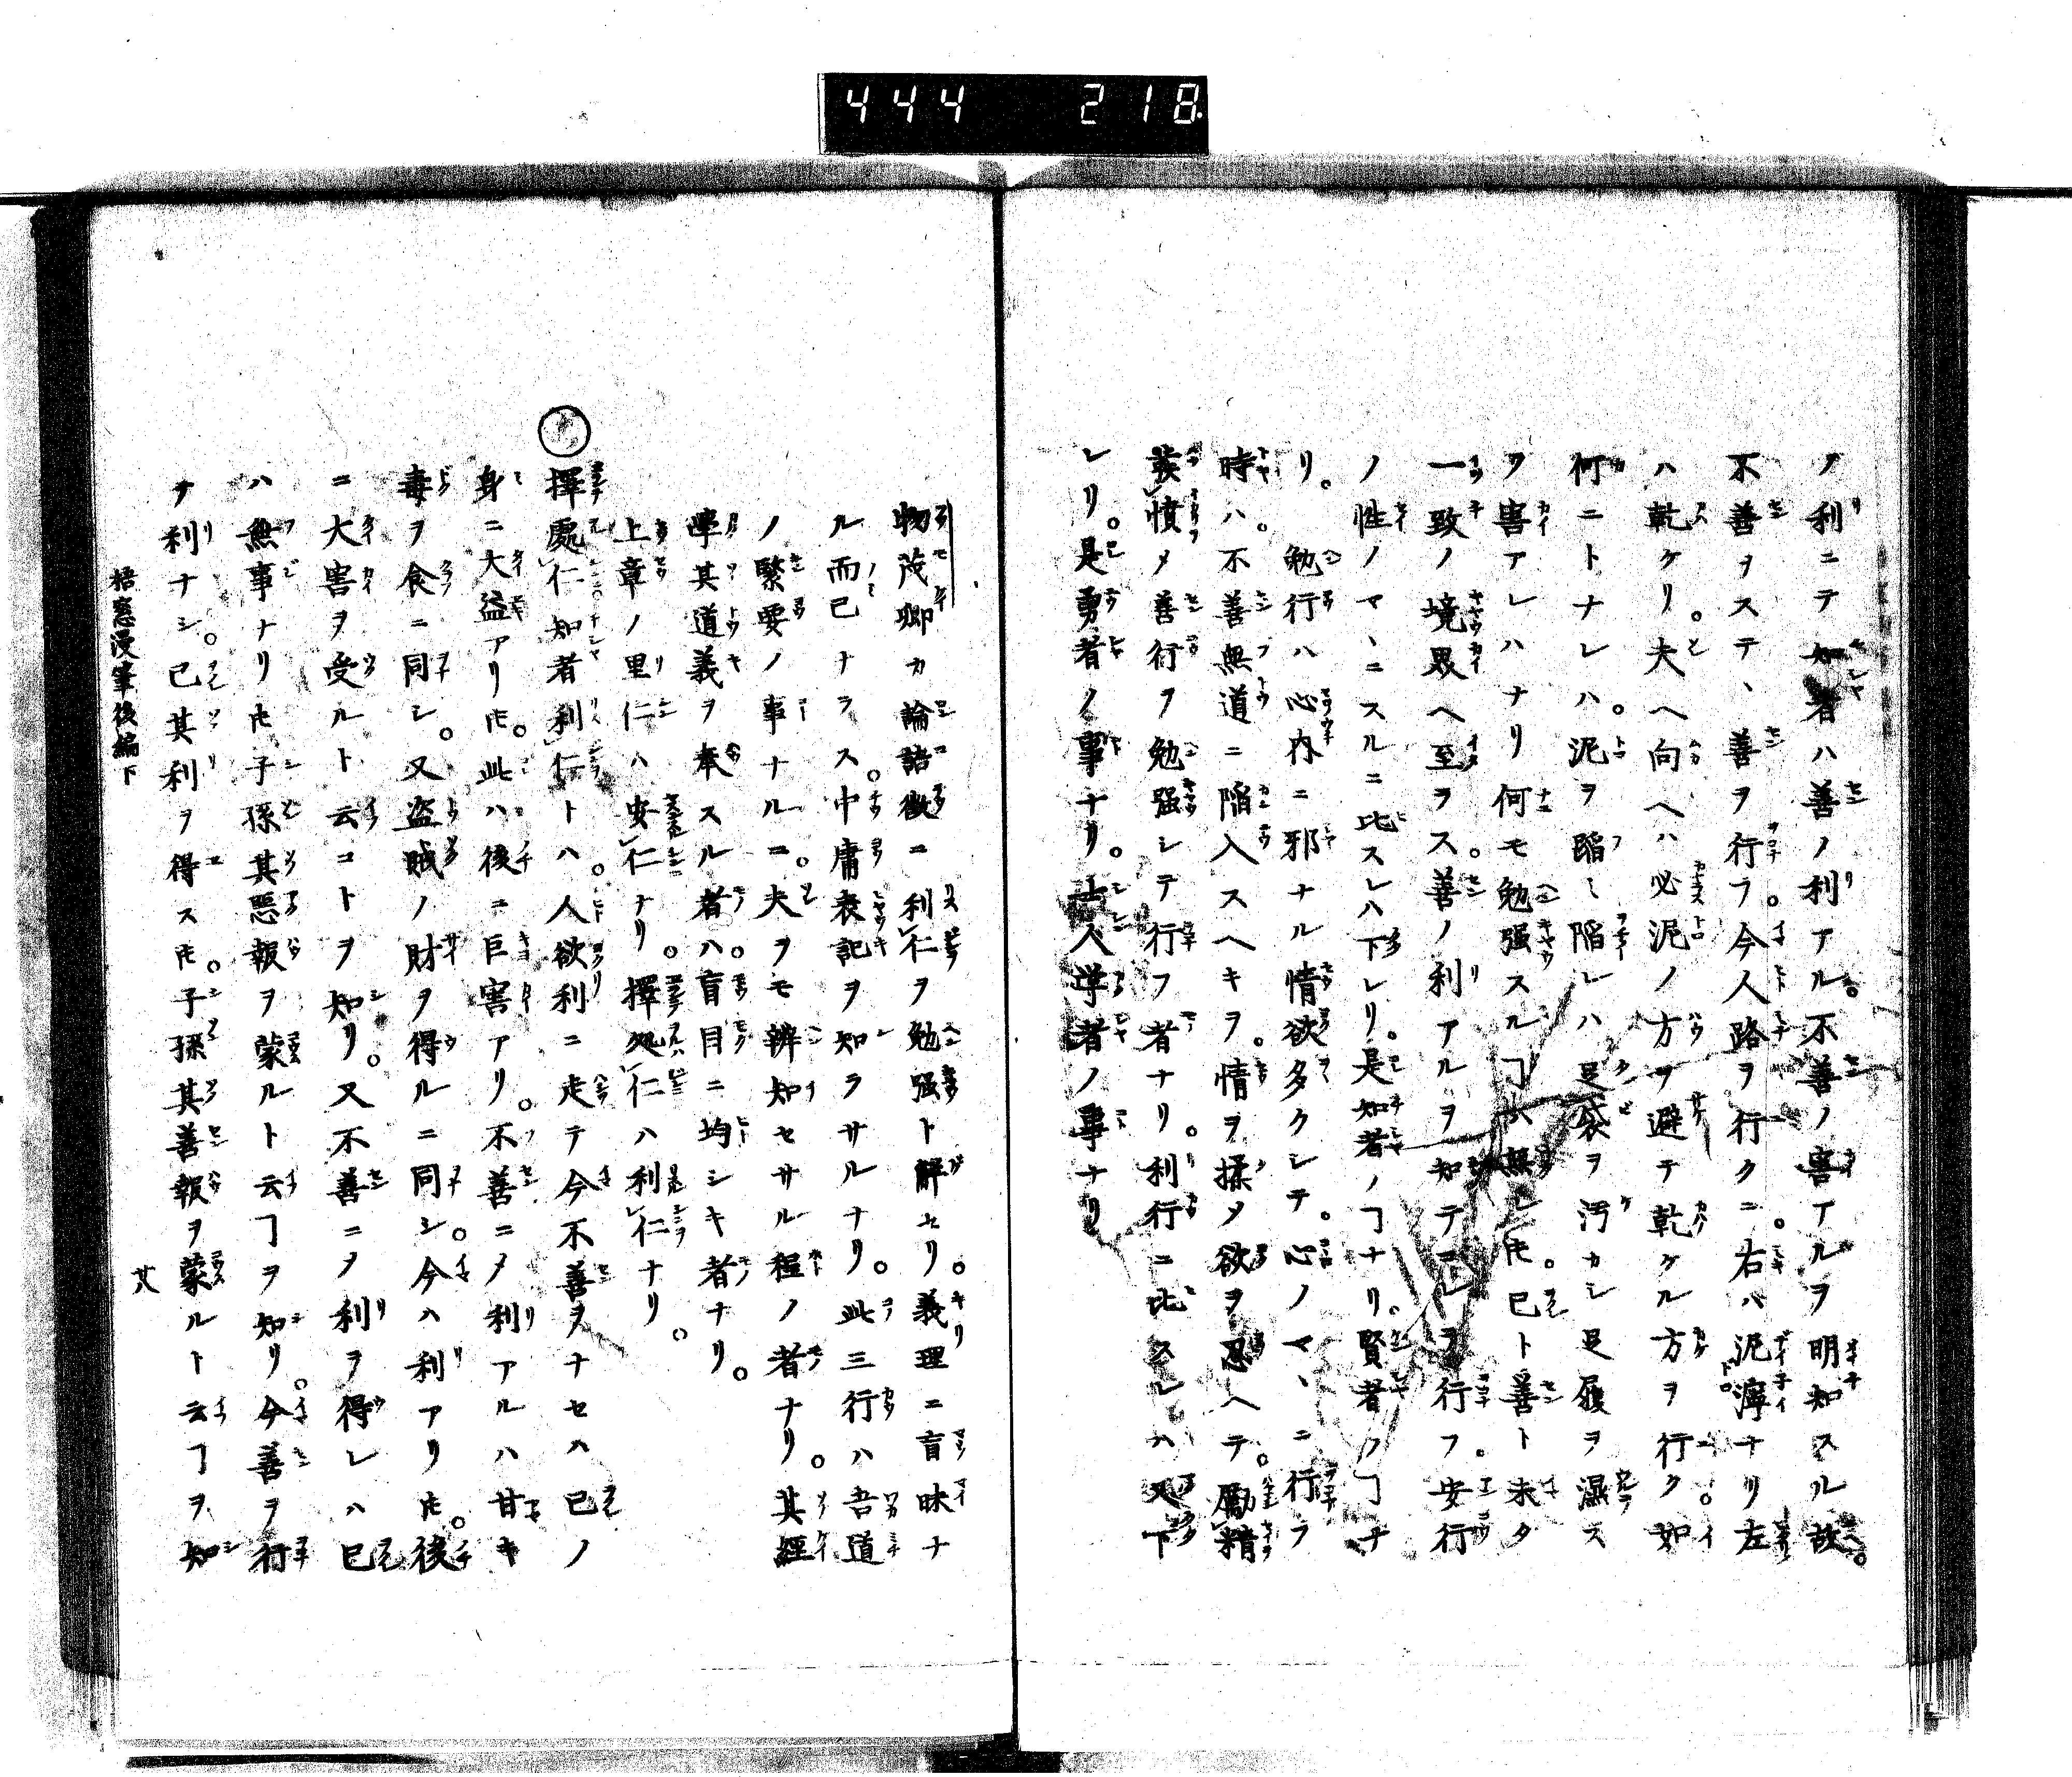 444 218
ノ利ニテ知者ハ善ノ利アル。不善ノ害アルヲ明知スル故。
不善ヲステ、善ヲ行フ。今人路ヲ行クニ。右ハ泥濘ナリ左
ハ乾ケリ。夫ヘ向ヘハ必泥ノ方ヲ避テ乾ケル方ヲ行ク。如
何ニトナレハ。泥ヲ蹈ミ陷レハ足袋ヲ汚カシ足履ヲ濕ス
ヲ害アレハナリ何モ勉强スルヿハ無レ𪜈。己ト善ト未タ
一致ノ境界ヘ至ラス。善ノ利アルヲ知テコレヲ行フ。安行
ノ性ノマヽニスルニ比スレハ下レリ。是知者ノヿナリ。賢者ノヿナ
リ。勉行ハ心内ニ邪ナル情欲多クシテ。心ノマヽニ行ラ
時ハ。不善無道ニ陷入スヘキヲ。情ヲ揉メ欲ヲ忍ヘテ。勵精
發憤メ善行ヲ勉强シテ行フ者ナリ。利行ニ比スレハ又下
レリ。是勇者ノ事ナリ。士人学者ノ事ナリ
物茂卿カ論語徴ニ利仁ヲ勉强ト解セリ。義理ニ盲昧ナ
ル而已ナラス。中庸表記ヲ知ラサルナリ。此三行ハ吾道
ノ緊要ノ事ナルニ。夫ヲモ辨知セサル程ノ者ナリ。其經
學其道義ヲ奉スル者ハ。盲目ニ均シキ者ナリ。
上章ノ里仁ハ安仁ナリ。擇処仁ハ利仁ナリ。
擇處仁知者利仁トハ。人欲利ニ走テ今不善ヲナセハ己ノ
身ニ大益アリ𪜈。此ハ後ニ巨害アリ。不善ニメ利アルハ甘キ
毒ヲ食ニ同シ。又盗賊ノ財ヲ得ルニ同シ。今ハ利アリ𪜈。後
ニ大害ヲ受ルト云コトヲ知リ。又不善ニメ利ヲ得レハ己
ハ無事ナリ𪜈子孫其惡報ヲ蒙ルト云ヿヲ知リ。今善ヲ行
ナ利ナシ。己其利ヲ得ス𪜈。子孫其善報ヲ蒙ルト云ヿヲ知
梧窓漫筆後編下
廿八